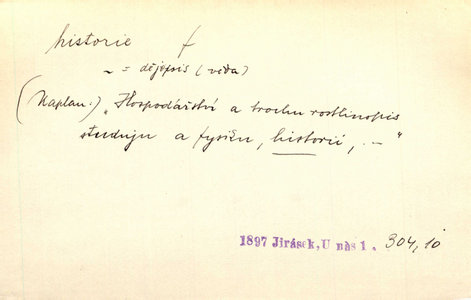 historie f
~ = dějepis (věda)
(Kaplan.) „Hospodářství a trochu rostlinopis
studuju a fysiku, historii, . — "
1897 Jirásek, U nás 1. 304, 10